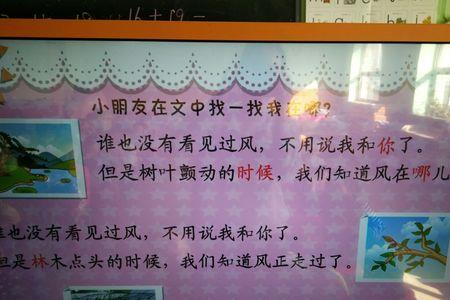 16+19=
小朋友在文中找一找我在哪?
谁也没有看见过风,不用说我和你了。
但是树叶颤动的时候,我们知道风在哪儿
也没有看见过风,不用说我和你了。
但是林木点头的时候,我们知道风正走过了。